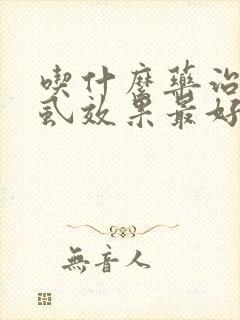 喫什麼藥治
虱效果最好
無音人